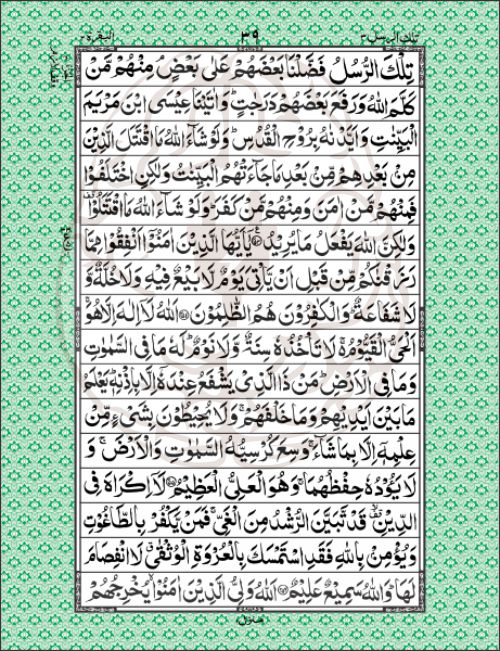 البقرة ٢ ٣٩ تلك الرسل ٣
تِلْكَ الرُّسُلُ فَضَّلْنَا بَعْضَهُمْ عَلٰى بَعْضٍ مِنْهُمْ مَّنْ
كَلَّمَ اللّٰهُ وَرَفَعَ بَعْضَهُمْ دَرَجٰتٍ ؕ وَاٰتَيْنَا عِيْسَى ابْنَ مَرْيَمَ
الْبَيِّنٰتِ وَاَيَّدْنٰهُ بِرُوْحِ الْقُدُسِ ؕ وَلَوْ شَآءَ اللّٰهُ مَا اقْتَتَلَ الَّذِيْنَ
مِنْۢ بَعْدِهِمْ مِّنْۢ بَعْدِ مَا جَآءَتْهُمُ الْبَيِّنٰتُ وَلٰكِنِ اخْتَلَفُوْا
فَمِنْهُمْ مَّنْ اٰمَنَ وَمِنْهُمْ مَّنْ كَفَرَ ؕ وَلَوْ شَآءَ اللّٰهُ مَا اقْتَتَلُوْا
وَلٰكِنَّ اللّٰهَ يَفْعَلُ مَا يُرِيْدُ ۝ يٰۤاَيُّهَا الَّذِيْنَ اٰمَنُوْۤا اَنْفِقُوْا مِمَّا
رَزَقْنٰكُمْ مِّنْ قَبْلِ اَنْ يَّاْتِيَ يَوْمٌ لَّا بَيْعٌ فِيْهِ وَلَا خُلَّةٌ وَّ
لَا شَفَاعَةٌ ؕ وَالْكٰفِرُوْنَ هُمُ الظّٰلِمُوْنَ ۝ اَللّٰهُ لَاۤ اِلٰهَ اِلَّا هُوَ ۚ
اَلْحَيُّ الْقَيُّوْمُ ۬ۚ لَا تَاْخُذُهٗ سِنَةٌ وَّلَا نَوْمٌ ؕ لَهٗ مَا فِي السَّمٰوٰتِ
وَمَا فِي الْاَرْضِ ؕ مَنْ ذَا الَّذِيْ يَشْفَعُ عِنْدَهٗۤ اِلَّا بِاِذْنِهٖ ؕ يَعْلَمُ
مَا بَيْنَ اَيْدِيْهِمْ وَمَا خَلْفَهُمْ ۚ وَلَا يُحِيْطُوْنَ بِشَيْءٍ مِّنْ
عِلْمِهٖۤ اِلَّا بِمَا شَآءَ ۚ وَسِعَ كُرْسِيُّهُ السَّمٰوٰتِ وَالْاَرْضَ ۚ وَ
لَا يَـُٔوْدُهٗ حِفْظُهُمَا ۚ وَهُوَ الْعَلِيُّ الْعَظِيْمُ ۝ لَاۤ اِكْرَاهَ فِي
الدِّيْنِ ۙ قَدْ تَّبَيَّنَ الرُّشْدُ مِنَ الْغَيِّ ۚ فَمَنْ يَّكْفُرْ بِالطَّاغُوْتِ
وَيُؤْمِنْۢ بِاللّٰهِ فَقَدِ اسْتَمْسَكَ بِالْعُرْوَةِ الْوُثْقٰى ۗ لَا انْفِصَامَ
لَهَا ؕ وَاللّٰهُ سَمِيْعٌ عَلِيْمٌ ۝ اَللّٰهُ وَلِيُّ الَّذِيْنَ اٰمَنُوْا ۙ يُخْرِجُهُمْ